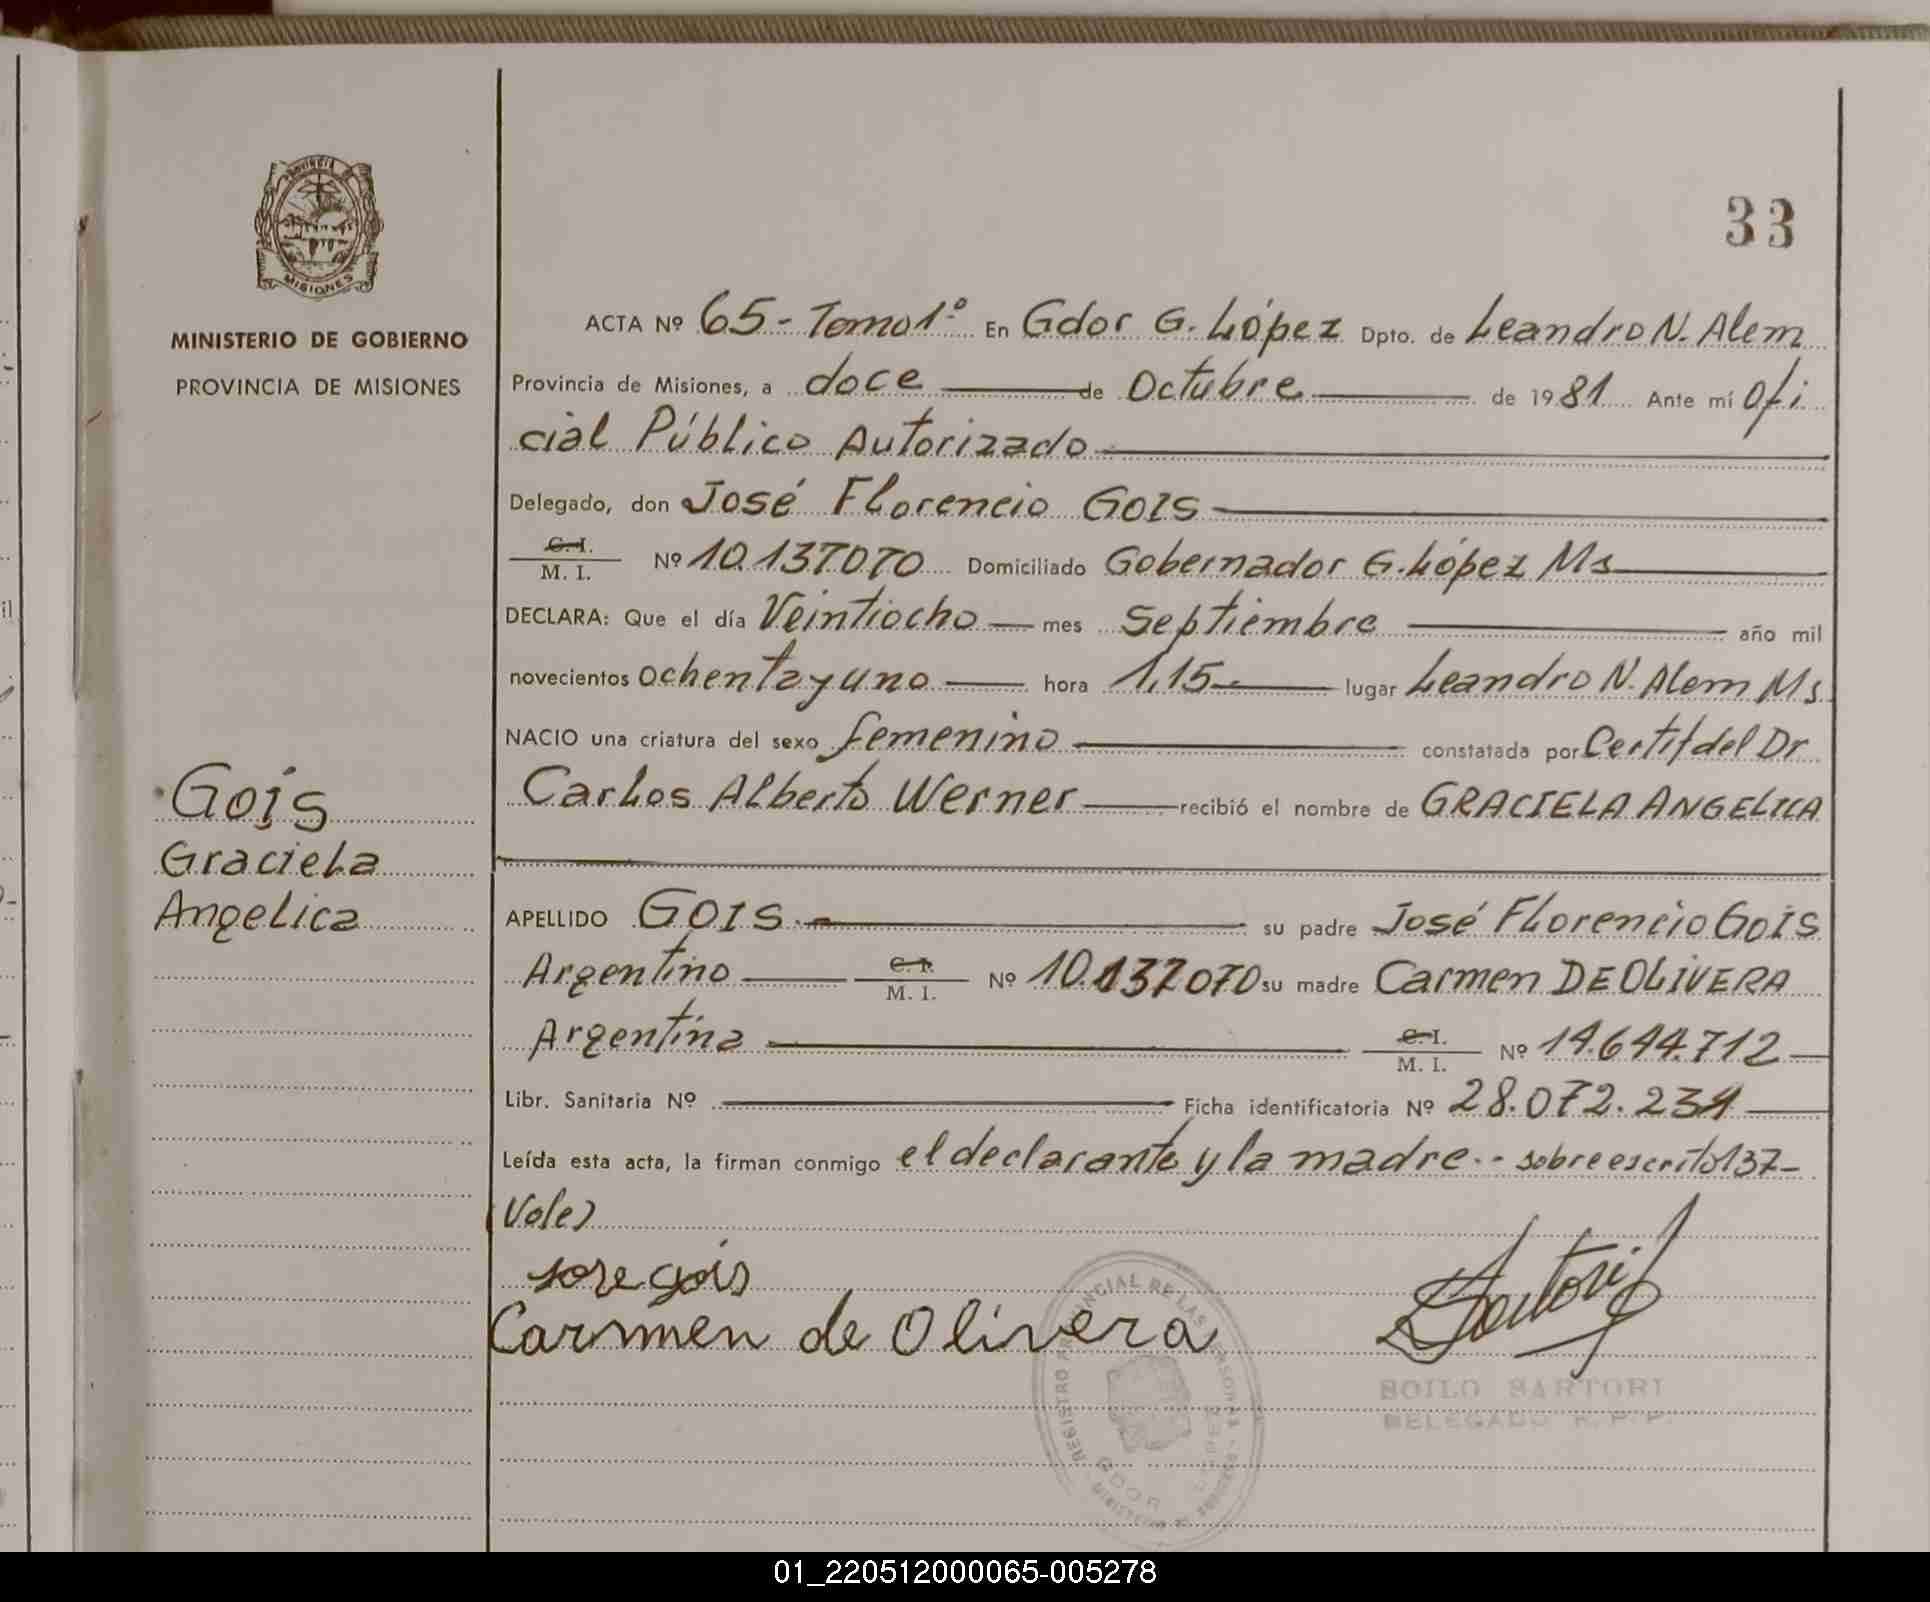 MISIONES
MINISTERIO DE GOBIERNO
PROVINCIA DE MISIONES
Gois
Graciela
Angelica
33
ACTA Nº 65- Tomo 1º En Gdor G. López Dpto. de Leandro N. Alem
Provincia de Misiones, a doce de Octubre de 1981 Ante mí Ofi
cial Público Autorizado
Delegado, don José Florencio GOIS
C. I.
M. I. Nº 10.137070 Domiciliado Gobernador G. López Ms
DECLARA: Que el día Veintiocho mes Septiembre año mil
novecientos Ochenta y uno hora 1,15 lugar Leandro N. Alem Ms
NACIO una criatura del sexo femenino constatada por Certif del Dr
Carlos Alberto Werner recibió el nombre de GRACIELA ANGELICA
APELLIDO GOIS su padre José Florencio GOIS
Argentino C. I. M. I. Nº 10.137070 su madre Carmen DE OLIVERA
Argentina C. I. M. I. Nº 14.644.712
Libr. Sanitaria Nº Ficha identificatoria Nº 28.072.234
Leída esta acta, la firman conmigo el declarante y la madre.- sobreescrito 137-
Vale)
Jose Gois
Carmen de Olivera
Sartori
REGISTRO PROVINCIAL DE LAS PERSONAS
GDOR
SOILO SARTORI
DELEGADO R.P.P.
01_220512000065-005278